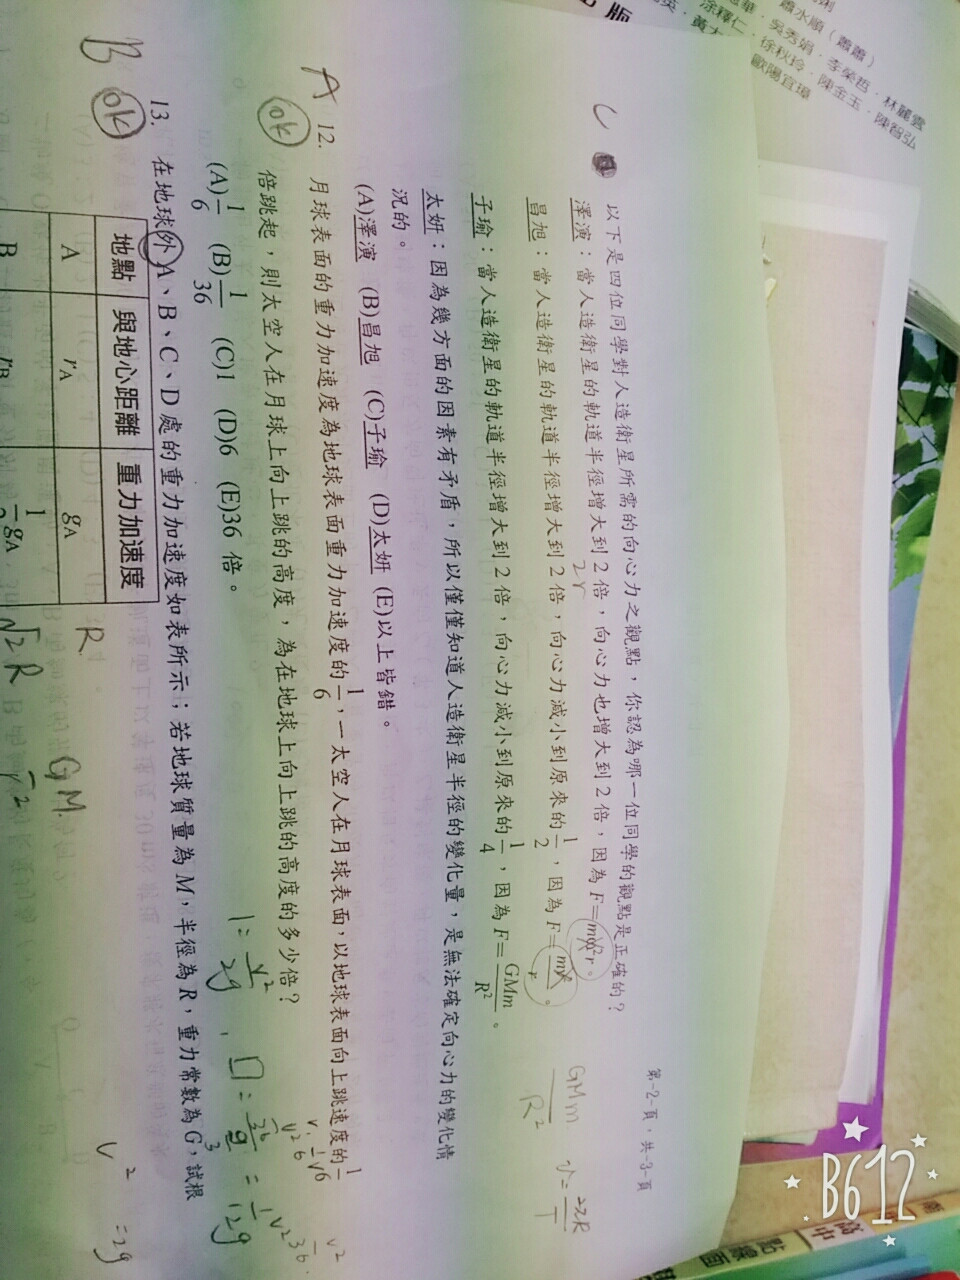 第-2-頁，共-3-頁
以下是四位同學對人造衛星所需的向心力之觀點，你認為哪一位同學的觀點是正確的？
澤演：當人造衛星的軌道半徑增大到2倍，向心力也增大到2倍，因為F=mω²r。
昌旭：當人造衛星的軌道半徑增大到2倍，向心力減小到原來的1/2，因為F=mv²/r。
子瑜：當人造衛星的軌道半徑增大到2倍，向心力減小到原來的1/4，因為F=GMm/R²。
太妍：因為幾方面的因素有矛盾，所以僅僅知道人造衛星半徑的變化量，是無法確定向心力的變化情
況的。
(A)澤演 (B)昌旭 (C)子瑜 (D)太妍 (E)以上皆錯。
12. 月球表面的重力加速度為地球表面重力加速度的1/6，一太空人在月球表面，以地球表面向上跳速度的1/
倍跳起，則太空人在月球上向上跳的高度，為在地球上向上跳的高度的多少倍？
(A)1/6 (B)1/36 (C)1 (D)6 (E)36 倍。
13. 在地球外A、B、C、D處的重力加速度如表所示；若地球質量為M，半徑為R，重力常數為G，試根
地點 與地心距離 重力加速度
A rA gA
B rB 1/2 gA
C
A
ok
B
ok
2r
GMm/R²
v=2πR/T
1=v²/2g
R
√2 R
GM
v²=2g
蕭水順（蕭蕭）
吳秀娟．李榮哲．林麗雲
涂釋仁．徐秋玲．陳金玉．陳智弘
歐陽宜璋
出版
高中
點線面
B612